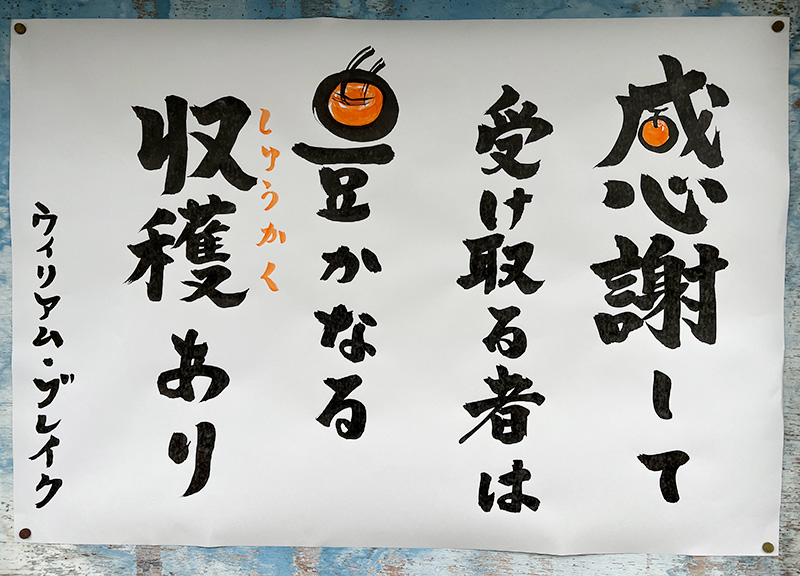 感謝して
受け取る者は
豊かなる
収穫あり
しゅうかく
ウィリアム・ブレイク